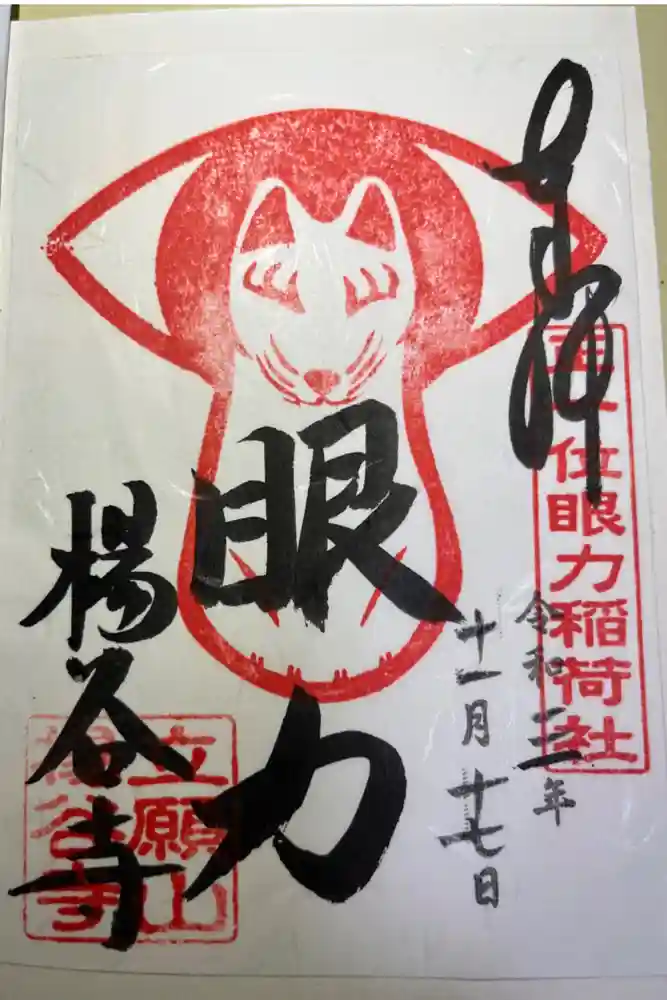 奉拝
正一位眼力稲荷社
令和三年
十一月十七日
眼力
楊谷寺
立願山
楊谷寺